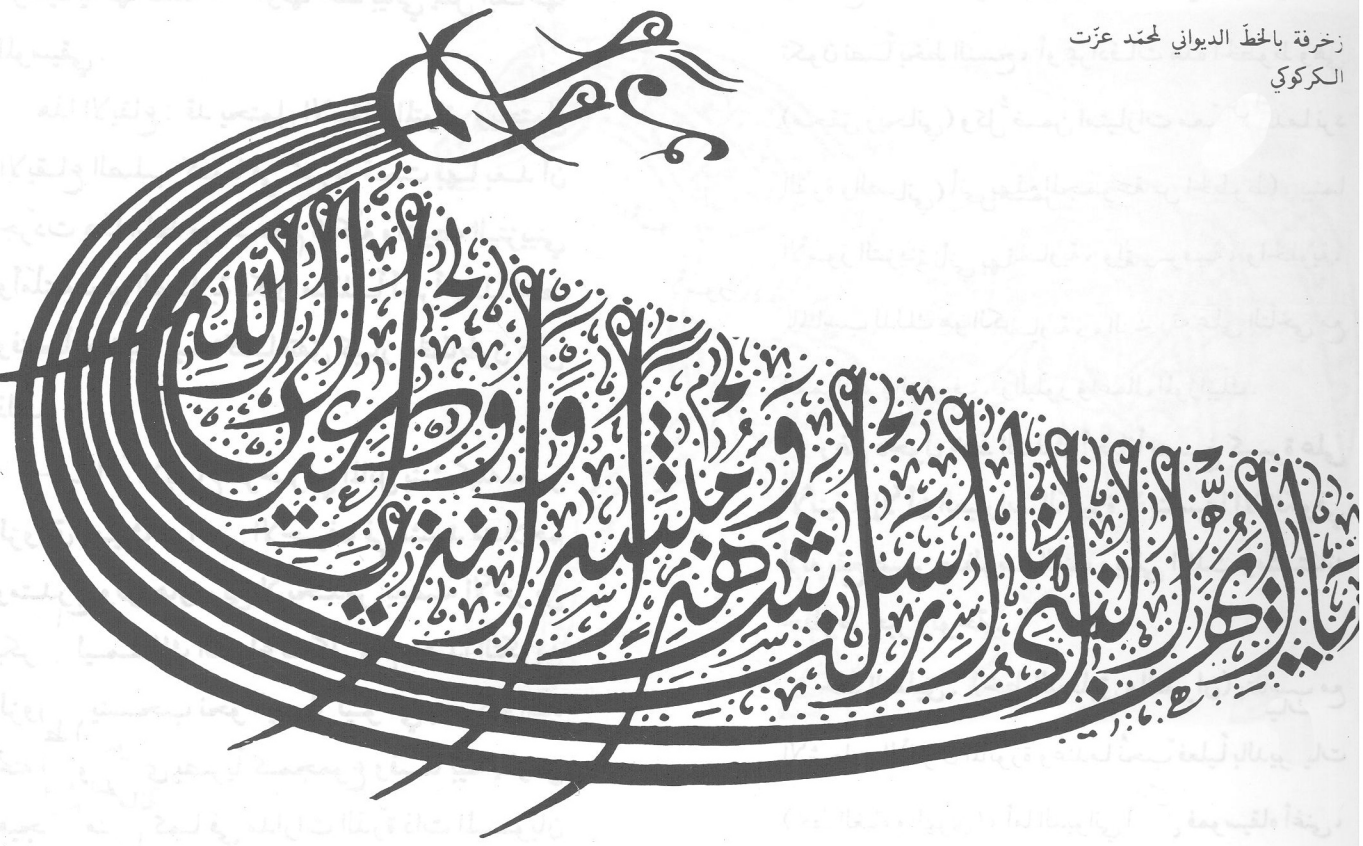 زخرفة بالخطّ الديواني لمحمّد عزّت
الكركوكي
يا ايها النبي انا ارسلناك شاهدا ومبشرا ونذيرا وداعيا الى الله